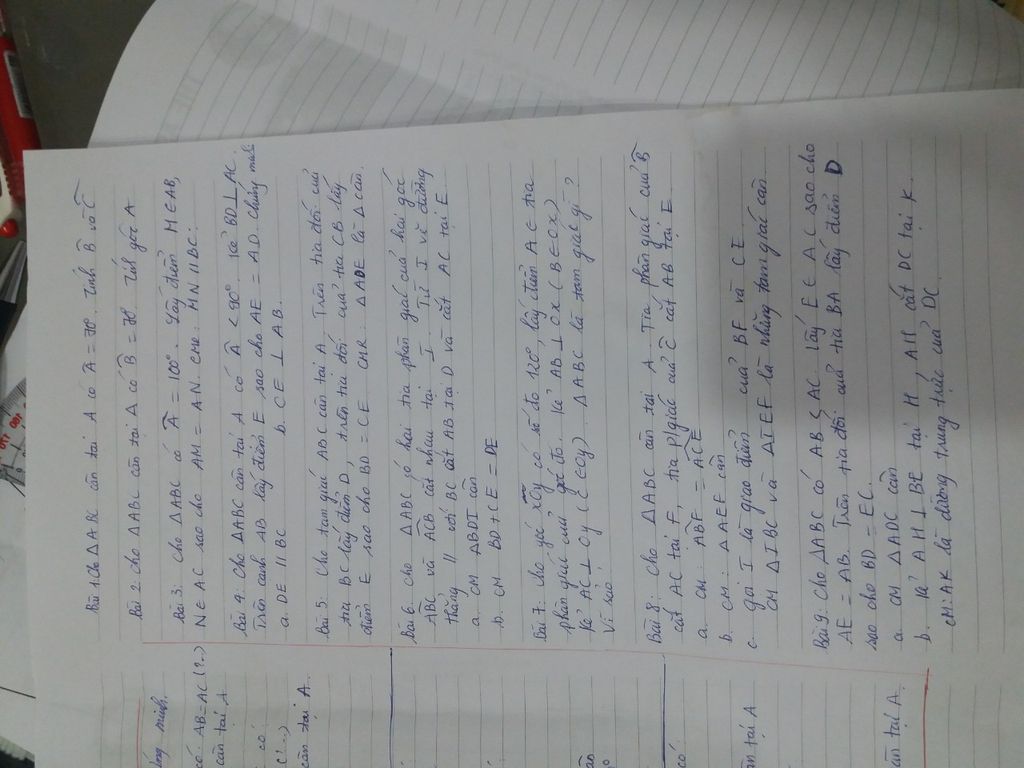 Bài 1. Cho △ABC cân tại A có Â = 70°. Tính B̂ và Ĉ
Bài 2: Cho △ABC cân tại A có B̂ = 70° Tính góc A
Bài 3: Cho △ABC có Â = 100°. Lấy điểm M∈AB,
N∈AC sao cho AM = AN. CMR: MN // BC.
Bài 4: Cho △ABC cân tại A có Â < 90°. Kẻ BD ⊥ AC.
Trên cạnh AB lấy điểm E sao cho AE = AD. Chứng minh
a. DE // BC b. CE ⊥ AB.
Bài 5: Cho tam giác ABC cân tại A. Trên tia đối của
tia BC lấy điểm D, trên tia đối của tia CB lấy
điểm E sao cho BD = CE CMR: △ADE là △ cân.
Bài 6: Cho △ABC có hai tia phân giác của hai góc
ABC và ACB cắt nhau tại I. Từ I vẽ đường
thẳng // với BC cắt AB tại D và cắt AC tại E
a. CM △BDI cân
b. CM BD + CE = DE
Bài 7: Cho góc xOy có số đo 120°, lấy điểm A ∈ tia
phân giác của góc đó. Kẻ AB ⊥ Ox (B∈Ox)
kẻ AC ⊥ Oy (C∈Oy). △ABC là tam giác gì?
Vì sao?
Bài 8: Cho △ABC cân tại A. Tia phân giác của B̂
cắt AC tại F, tia p/giác của Ĉ cắt AB tại E.
a. CM: ABF = ACE
b. CM: △AEF cân
c. gọi I là giao điểm của BF và CE
CM △IBC và △IEF là những tam giác cân.
Bài 9: Cho △ABC có AB < AC. Lấy E ∈ AC sao cho
AE = AB. Trên tia đối của tia BA lấy điểm D
sao cho BD = EC.
a. CM △ADC cân
b. kẻ AH ⊥ BE tại H, AH cắt DC tại K.
CM: AK là đường trung trực của DC.
minh.
có: AB = AC (?...)
cân tại A
có
(?...)
cân tại A.
có
ân tại A
ân tại A.